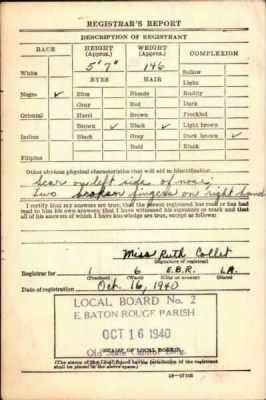 REGISTRAR'S REPORT
DESCRIPTION OF REGISTRANT
RACE HEIGHT (Approx.) WEIGHT (Approx.) COMPLEXION
5' 7" 146
White EYES HAIR Sallow
Light
Negro ✓ Blue Blonde Ruddy
Gray Red Dark
Oriental Hazel Brown Freckled
Brown ✓ Black ✓ Light brown
Indian Black Gray Dark brown ✓
Bald Black
Filipino
Other obvious physical characteristics that will aid in identification
Scar on left side of nose;
Two broken fingers on right hand
I certify that my answers are true; that the person registered has read or has had
read to him his own answers; that I have witnessed his signature or mark and that
all of his answers of which I have knowledge are true, except as follows:
Miss Ruth Collet
(Signature of registrar)
Registrar for 1 6 E.B.R. LA.
(Precinct) (Ward) (City or county) (State)
Date of registration Oct. 16, 1940
LOCAL BOARD No. 2
E. BATON ROUGE PARISH
OCT 16 1940
Old State Capitol Bldg.
(STAMP OF LOCAL BOARD)
(The stamp of the Local Board having jurisdiction of the registrant
shall be placed in the above space.)